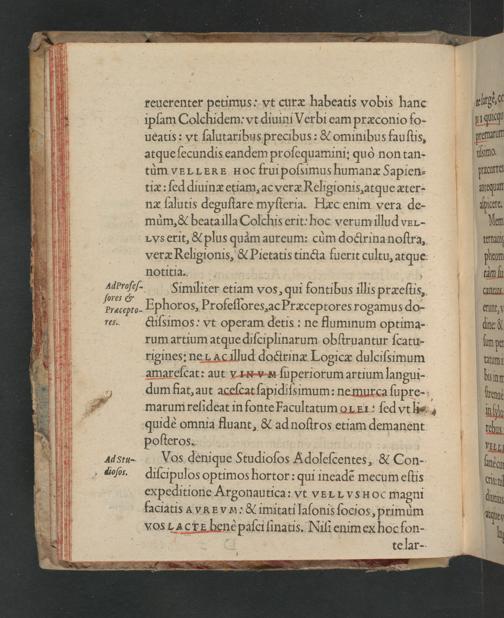 reuerenter petimus: vt curæ habeatis vobis hanc
ipsam Colchidem: vt diuini Verbi eam præconio fo-
ueatis: vt salutaribus precibus: & ominibus faustis,
atque secundis eandem prosequamini: quò non tan-
tùm VELLERE HOC frui possimus humanæ Sapien-
tiæ: sed diuinæ etiam, ac veræ Religionis, atque æter-
næ salutis degustare mysteria. Hæc enim vera de-
mùm, & beata illa Colchis erit: hoc verum illud VEL-
LVS erit, & plus quàm aureum: cùm doctrina nostra,
veræ Religionis, & Pietatis tincta fuerit cultu, atque
notitia.
Ad Profes-
sores &
Præcepto-
res.
Similiter etiam vos, qui fontibus illis præestis,
Ephoros, Professores, ac Præceptores rogamus do-
ctissimos: vt operam detis: ne fluminum optima-
rum artium atque disciplinarum obstruantur scatu-
rigines: ne LAC illud doctrinæ Logicæ dulcissimum
amarescat: aut VINVM superiorum artium langui-
dum fiat, aut acescat sapidissimum: ne murca supre-
marum resideat in fonte Facultatum OLEI: sed vt li-
quidè omnia fluant, & ad nostros etiam demanent
posteros.
Ad Stu-
diosos.
Vos denique Studiosos Adolescentes, & Con-
discipulos optimos hortor: qui in eadē mecum estis
expeditione Argonautica: vt VELLVS HOC magni
faciatis AVREVM: & imitati Iasonis socios, primùm
vos LACTE benè pasci sinatis. Nisi enim ex hoc fon-
te lar-